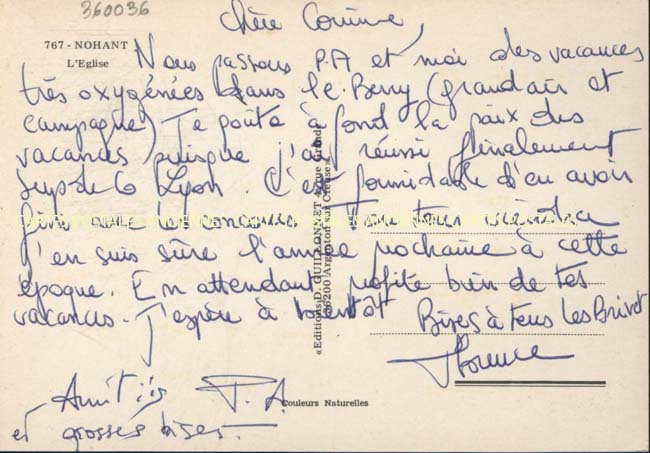 360036
Chère Corinne,
767 - NOHANT
L'Eglise
Nous passons P.A et moi des vacances
très oxygénées dans le Berry (grand air et
campagne) Je goûte à fond la paix des
vacances puisque j'ai réussi finalement
Lyon. C'est formidable d'en avoir
fini avec les concours. Ton tour viendra
j'en suis sûre l'année prochaine à cette
époque. En attendant profite bien de tes
vacances. J'espère à bientôt
Bises à tous les Brivet
Florence
Amitiés P.A.
et grosses bises.
«Editions D. GUILLONNET 4, rue Grande
36200 Argenton sur Creuse»
Couleurs Naturelles